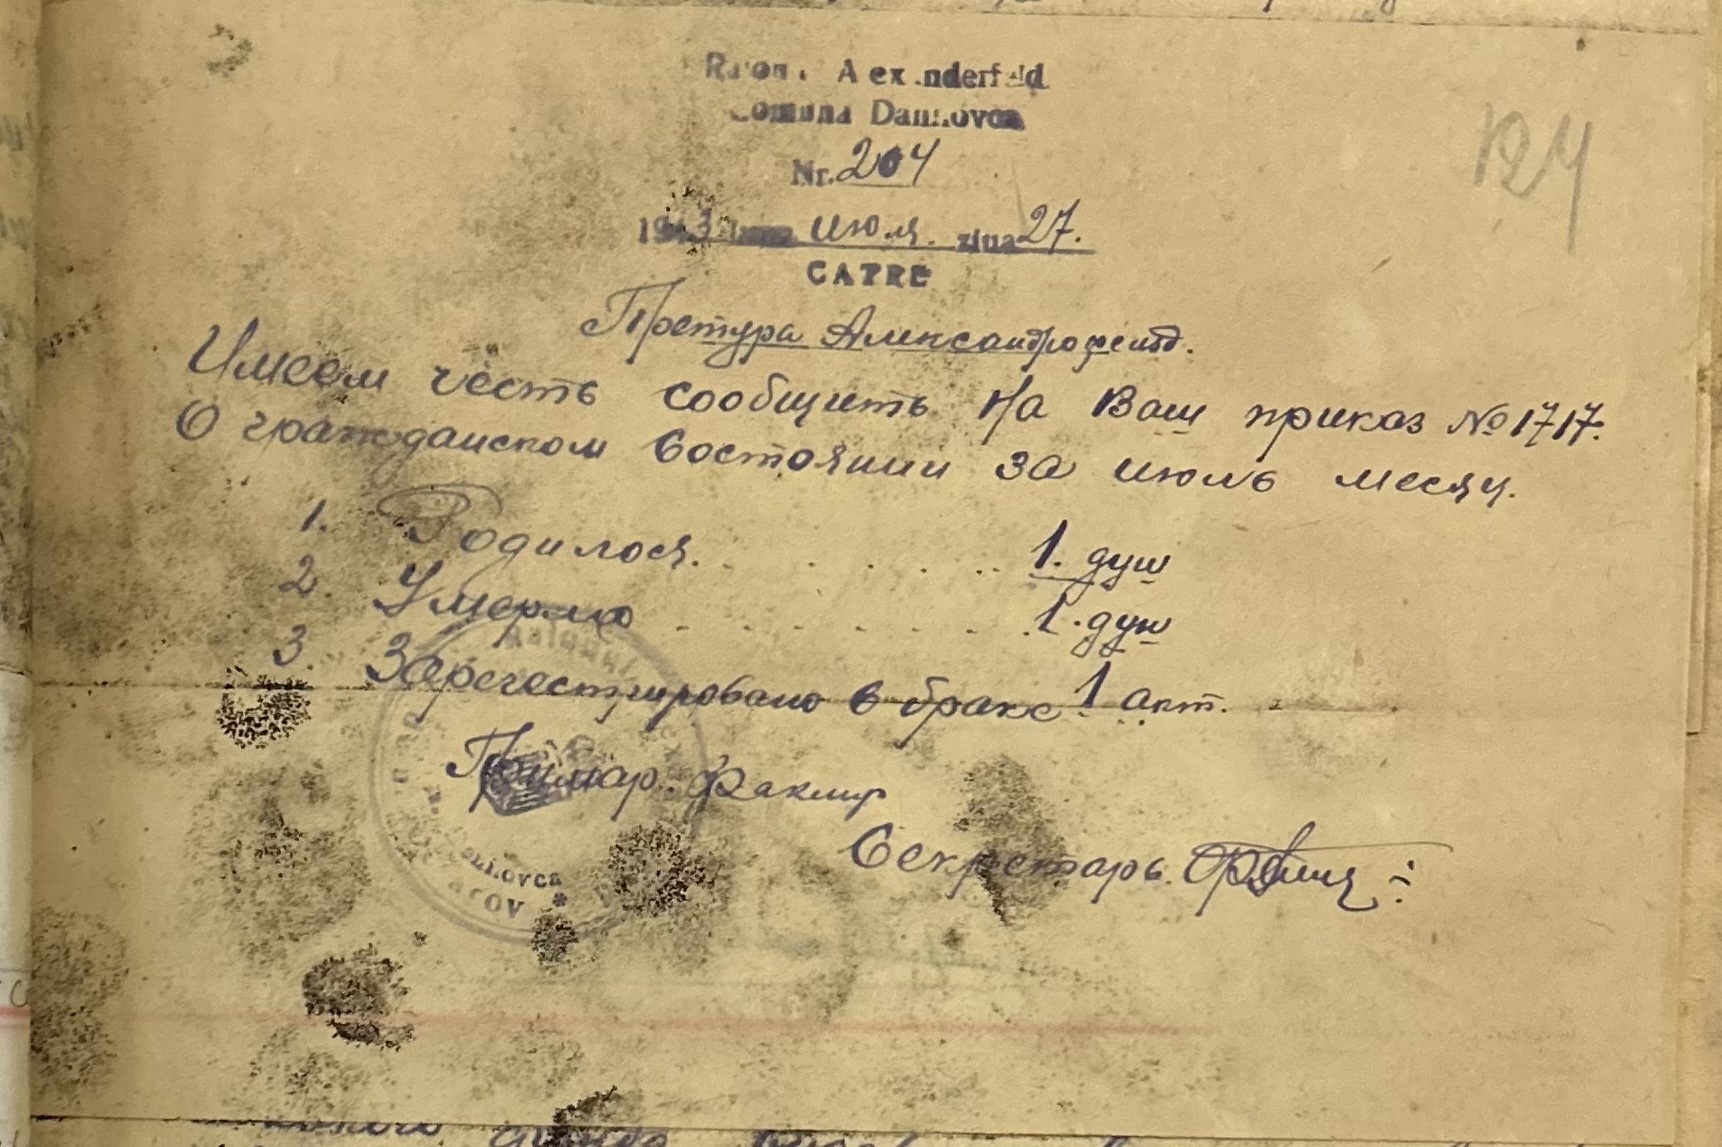 124
Raionul Alexanderfeld
Comuna Danilovca
Nr. 204
1943 luna июля. ziua 27.
CATRE
Претура Александрофельд.
Имеем честь сообщить На Ваш приказ № 1717.
О гражданском состоянии за июль месяц.
1. Родилося . . . . . . 1. душ
2. Умерло . . . . . . . 1. душ
3. Заречестрировано в браке 1 акт.
Примар. Факир
Секретарь.